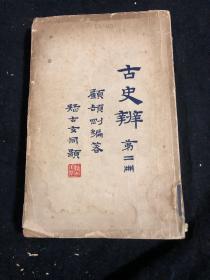 古史辨 第二册
顧頡剛編著
疑古玄同題